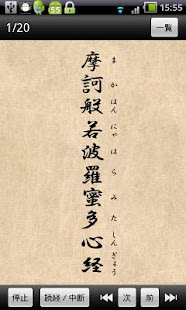 55
15:55
1/20
一覧
摩訶般若波羅蜜多心経
まかはんにゃはらみたしんぎょう
停止
読経/中断
次
前